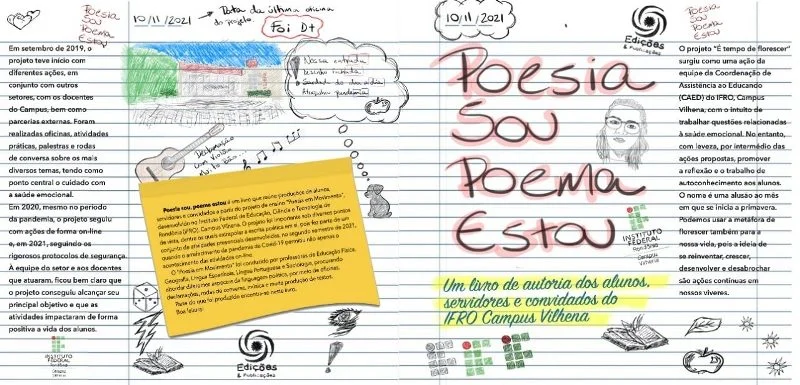 Poesia
Sou
Poema
Estou
Em setembro de 2019, o
projeto teve início com
diferentes ações, em
conjunto com outros
setores, com os docentes
do Campus, bem como
parcerias externas. Foram
realizadas oficinas, atividades
práticas, palestras e rodas
de conversa sobre os mais
diversos temas, tendo como
ponto central o cuidado com
a saúde emocional.
Em 2020, mesmo no período
da pandemia, o projeto seguiu
com ações de forma on-line
e, em 2021, seguindo os
rigorosos protocolos de segurança.
À equipe do setor e aos docentes
que atuaram, ficou bem claro que
o projeto conseguiu alcançar seu
principal objetivo e que as
atividades impactaram de forma
positiva a vida dos alunos.
INSTITUTO
FEDERAL
Rondônia
Campus
Vilhena
10/11/2021 → Data da última oficina
do projeto.
Foi D+
Nossa entrada
Desenho
Saudade do dia a dia
pandemia
Declamação
um violão
Poesia sou, poema estou é um livro que reúne produções de alunos,
servidores e convidados a partir do projeto de ensino "Poesia em MoVimento",
desenvolvido no Instituto Federal de Educação, Ciência e Tecnologia de
Rondônia (IFRO), Campus Vilhena. O projeto foi importante sob diversos pontos
de vista, dentre os quais extrapolar a escrita poética em si, pois foi parte de um
conjunto de atividades presenciais desenvolvidas, no segundo semestre de 2021,
quando o arrefecimento da pandemia da Covid-19 permitiu não apenas o
acontecimento das atividades on-line.
O "Poesia em MoVimento" foi conduzido por professores de Educação Física,
Geografia, Língua Espanhola, Língua Portuguesa e Sociologia, procurando
abordar diferentes aspectos da linguagem poética, por meio de oficinas,
declamações, rodas de conversa, música e muita produção de textos.
Parte do que foi produzido encontra-se neste livro.
Boa leitura!
Edições
& Publicações
10/11/2021
Edições
& Publicações
Poesia
Sou
Poema
Estou
INSTITUTO
FEDERAL
Rondônia
Campus
Vilhena
Um livro de autoria dos alunos,
servidores e convidados do
IFRO Campus Vilhena
Poesia
Sou
Poema
Estou
O projeto "É tempo de florescer"
surgiu como uma ação da
equipe da Coordenação de
Assistência ao Educando
(CAED) do IFRO, Campus
Vilhena, com o intuito de
trabalhar questões relacionadas
à saúde emocional. No entanto,
com leveza, por intermédio das
ações propostas, promover
a reflexão e o trabalho de
autoconhecimento aos alunos.
O nome é uma alusão ao mês
em que se inicia a primavera.
Podemos usar a metáfora de
florescer também para a
nossa vida, pois a ideia de
se reinventar, crescer,
desenvolver e desabrochar
são ações contínuas em
nossos viveres.
23